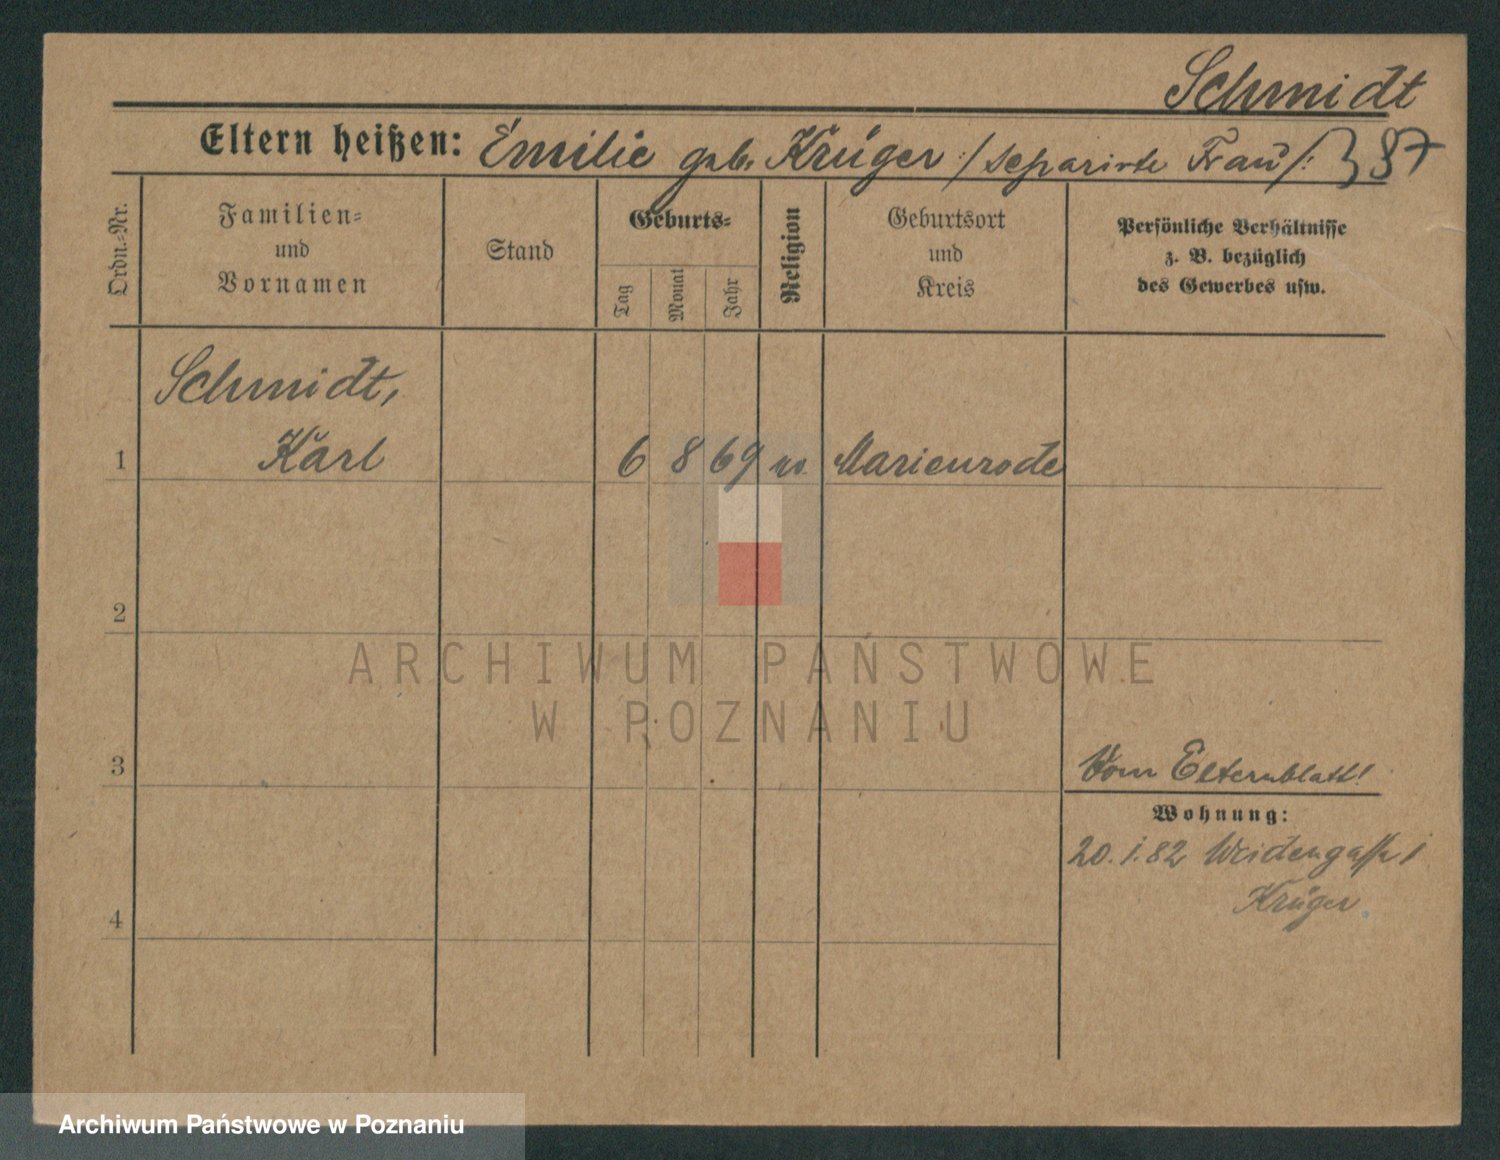 Schmidt
Eltern heißen: Emilie geb. Krüger /: separirte Frau /: 397
Ordn.=Nr.
Familien=
und
Vornamen
Stand
Geburts=
Tag
Monat
Jahr
Religion
Geburtsort
und
Kreis
Persönliche Verhältnisse
z. B. bezüglich
des Gewerbes usw.
Schmidt,
1 Karl 6 8 69 Marienrode
2
ARCHIWUM PAŃSTWOWE
W POZNANIU
3
Vom Elternblatt!
Wohnung:
20. 1. 82 Weidengasse 1
Krüger
4
Archiwum Państwowe w Poznaniu